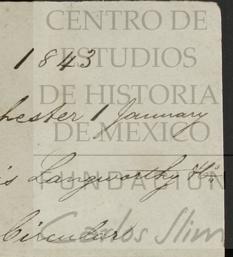 CENTRO DE
ESTUDIOS
1843
DE HISTORIA
hester 1 January
DE MEXICO
s Langworthy
FUNDACION
Carlos Slim
Circular